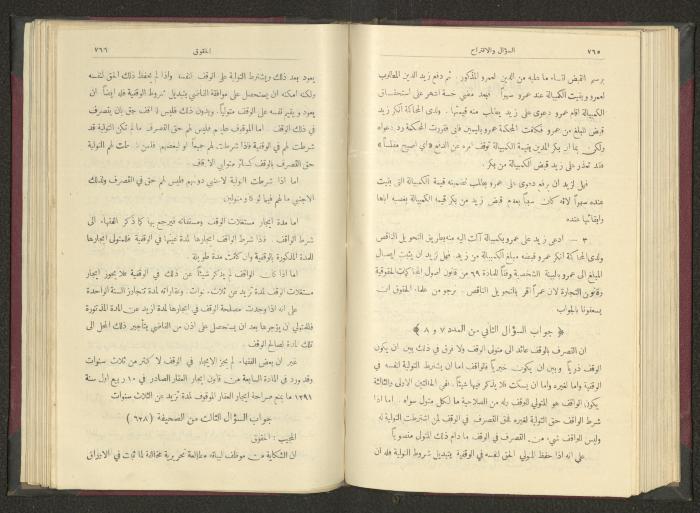 ٧٦٥
السؤال والاقتراح
برسم القبض انساء ما عليه من الدين لعمرو المذكور ثم دفع زيد الدين المطلوب
لعمرو وبقيت الكمبيالة عند عمرو سهواً فبعد مضي خمسة اشهر على استحقاق
الكمبيالة اقام عمرو دعوى على زيد يطالب منه قيمتها. ولدى المحاكمة انكر زيد
قبض المبلغ من عمرو فكلفت المحكمة عمرو باليمين فابى فقررت المحكمة رد دعواه
ولكن بما ان بكر المدين بقيمة الكمبيالة توقف امره عن الدفع «اي اصبح مفلساً»
فقد تعذر على زيد قبض الكمبيالة من بكر.
فهل لزيد ان يرفع دعوى على عمرو يطالب تضمينه قيمة الكمبيالة التي بقيت
عنده سهواً لانه كان سبباً بعدم قبض زيد من بكر قيمة الكمبيالة بنفسه اياها
وابقائها عنده
٣ — ادعى زيد على عمرو بكمبيالة آلت اليه منه بطريق التحويل الناقص
ولدى المحاكمة انكر عمرو قبضه مبلغ الكمبيالة من زيد. فهل لزيد ان يثبت ايصال
المبلغ الى عمرو بالبينة الشخصية وفقاً للمادة ٦٩ من قانون اصول المحاكمات الحقوقية
وقانون التجارة لان عمراً اقر بالتحويل الناقص. نرجو من علماء الحقوق ان
يسعفونا بالجواب
﴿ جواب السؤال الثاني من العدد ٧ و ٨ ﴾
ان التصرف بالوقف عائد الى متولي الوقف ولا فرق في ذلك بين ان يكون
الوقف ذرياً وبين ان يكون خيرياً فالواقف اما ان يشترط التولية لنفسه في
الوقفية واما لغيره واما ان يسكت فلا يذكر فيها شيئاً. ففي الحالتين الاولى والثالثة
يكون الواقف هو المتولي للوقف وله من الصلاحية ما لكل متول سواه. اما اذا
شرط الواقف حق التولية لغيره فحق التصرف في الوقف لمن اشترطت التولية له
وليس للواقف شيء من التصرف في الوقف ما دام ذلك المتولي منصوباً
على انه اذا حفظ المولي الحق لنفسه في الوقفية بتبديل شروط التولية فله ان
الحقوق
٧٦٦
يعود بعد ذلك ويشترط التولية على الوقف لنفسه واذا لم يحفظ ذلك الحق لنفسه
ولكنه امكنه ان يستحصل على موافقة القاضي بتبديل شروط الوقفية فله ايضاً ان
يعود ويقيم نفسه على الوقف متولياً. وبدون ذلك فليس للواقف حق بان يتصرف
في ذلك الوقف. اما الموقوف عليهم فليس لهم حق التصرف ما لم تكن التولية قد
شرطت لهم في الوقفية فاذا شرطت لهم جميعاً او لبعضهم فلمن شرطت لهم التولية
حق التصرف بالوقف كسائر متولي الاوقاف.
اما اذا شرطت التولية لاجنبي دونهم فليس لهم حق في التصرف ولذلك
الاجنبي ما لهم فيها لو كانوا متولين
اما مدة ايجار مستغلات الوقف ومسقفاته فيرجع بها كما ذكر الفقهاء الى
شرط الواقف. فاذا شرط الواقف ايجارها لمدة عينها في الوقفية فللمتولي ايجارها
للمدة المذكورة بالوقفية وان كانت مدة طويلة
اما اذا كان الواقف لم يذكر شيئاً عن ذلك في الوقفية فلا يجوز ايجار
مستغلات الوقف لمدة تزيد عن ثلاث سنوات. وعقاراته لمدة تتجاوز السنة الواحدة
على انه اذا وجدت مصلحة الوقف في ايجارها لمدة ازيد عن المدة المذكورة
فللمتولي ان يؤجرها بعد ان يستحصل على اذن من القاضي بتأجير ذلك المحل الى
تلك المدة لصالح الوقف.
غير ان بعض الفقهاء لم يجز الايجار في الوقف لاكثر من ثلاث سنوات
وقد ورد في المادة السابعة من قانون ايجار العقار الصادر في ١٠ ربيع اول سنة
١٢٩١ ما يمنع صراحة ايجار العقار الموقوف لمدة تزيد عن الثلاث سنوات
جواب السؤال الثالث من الصحيفة (٦٣٨)
المجيب : الحقوق
ان الشكاية من موظف لبيانه مطالعة تحريرية مخالفة لما ثبت في الاوراق